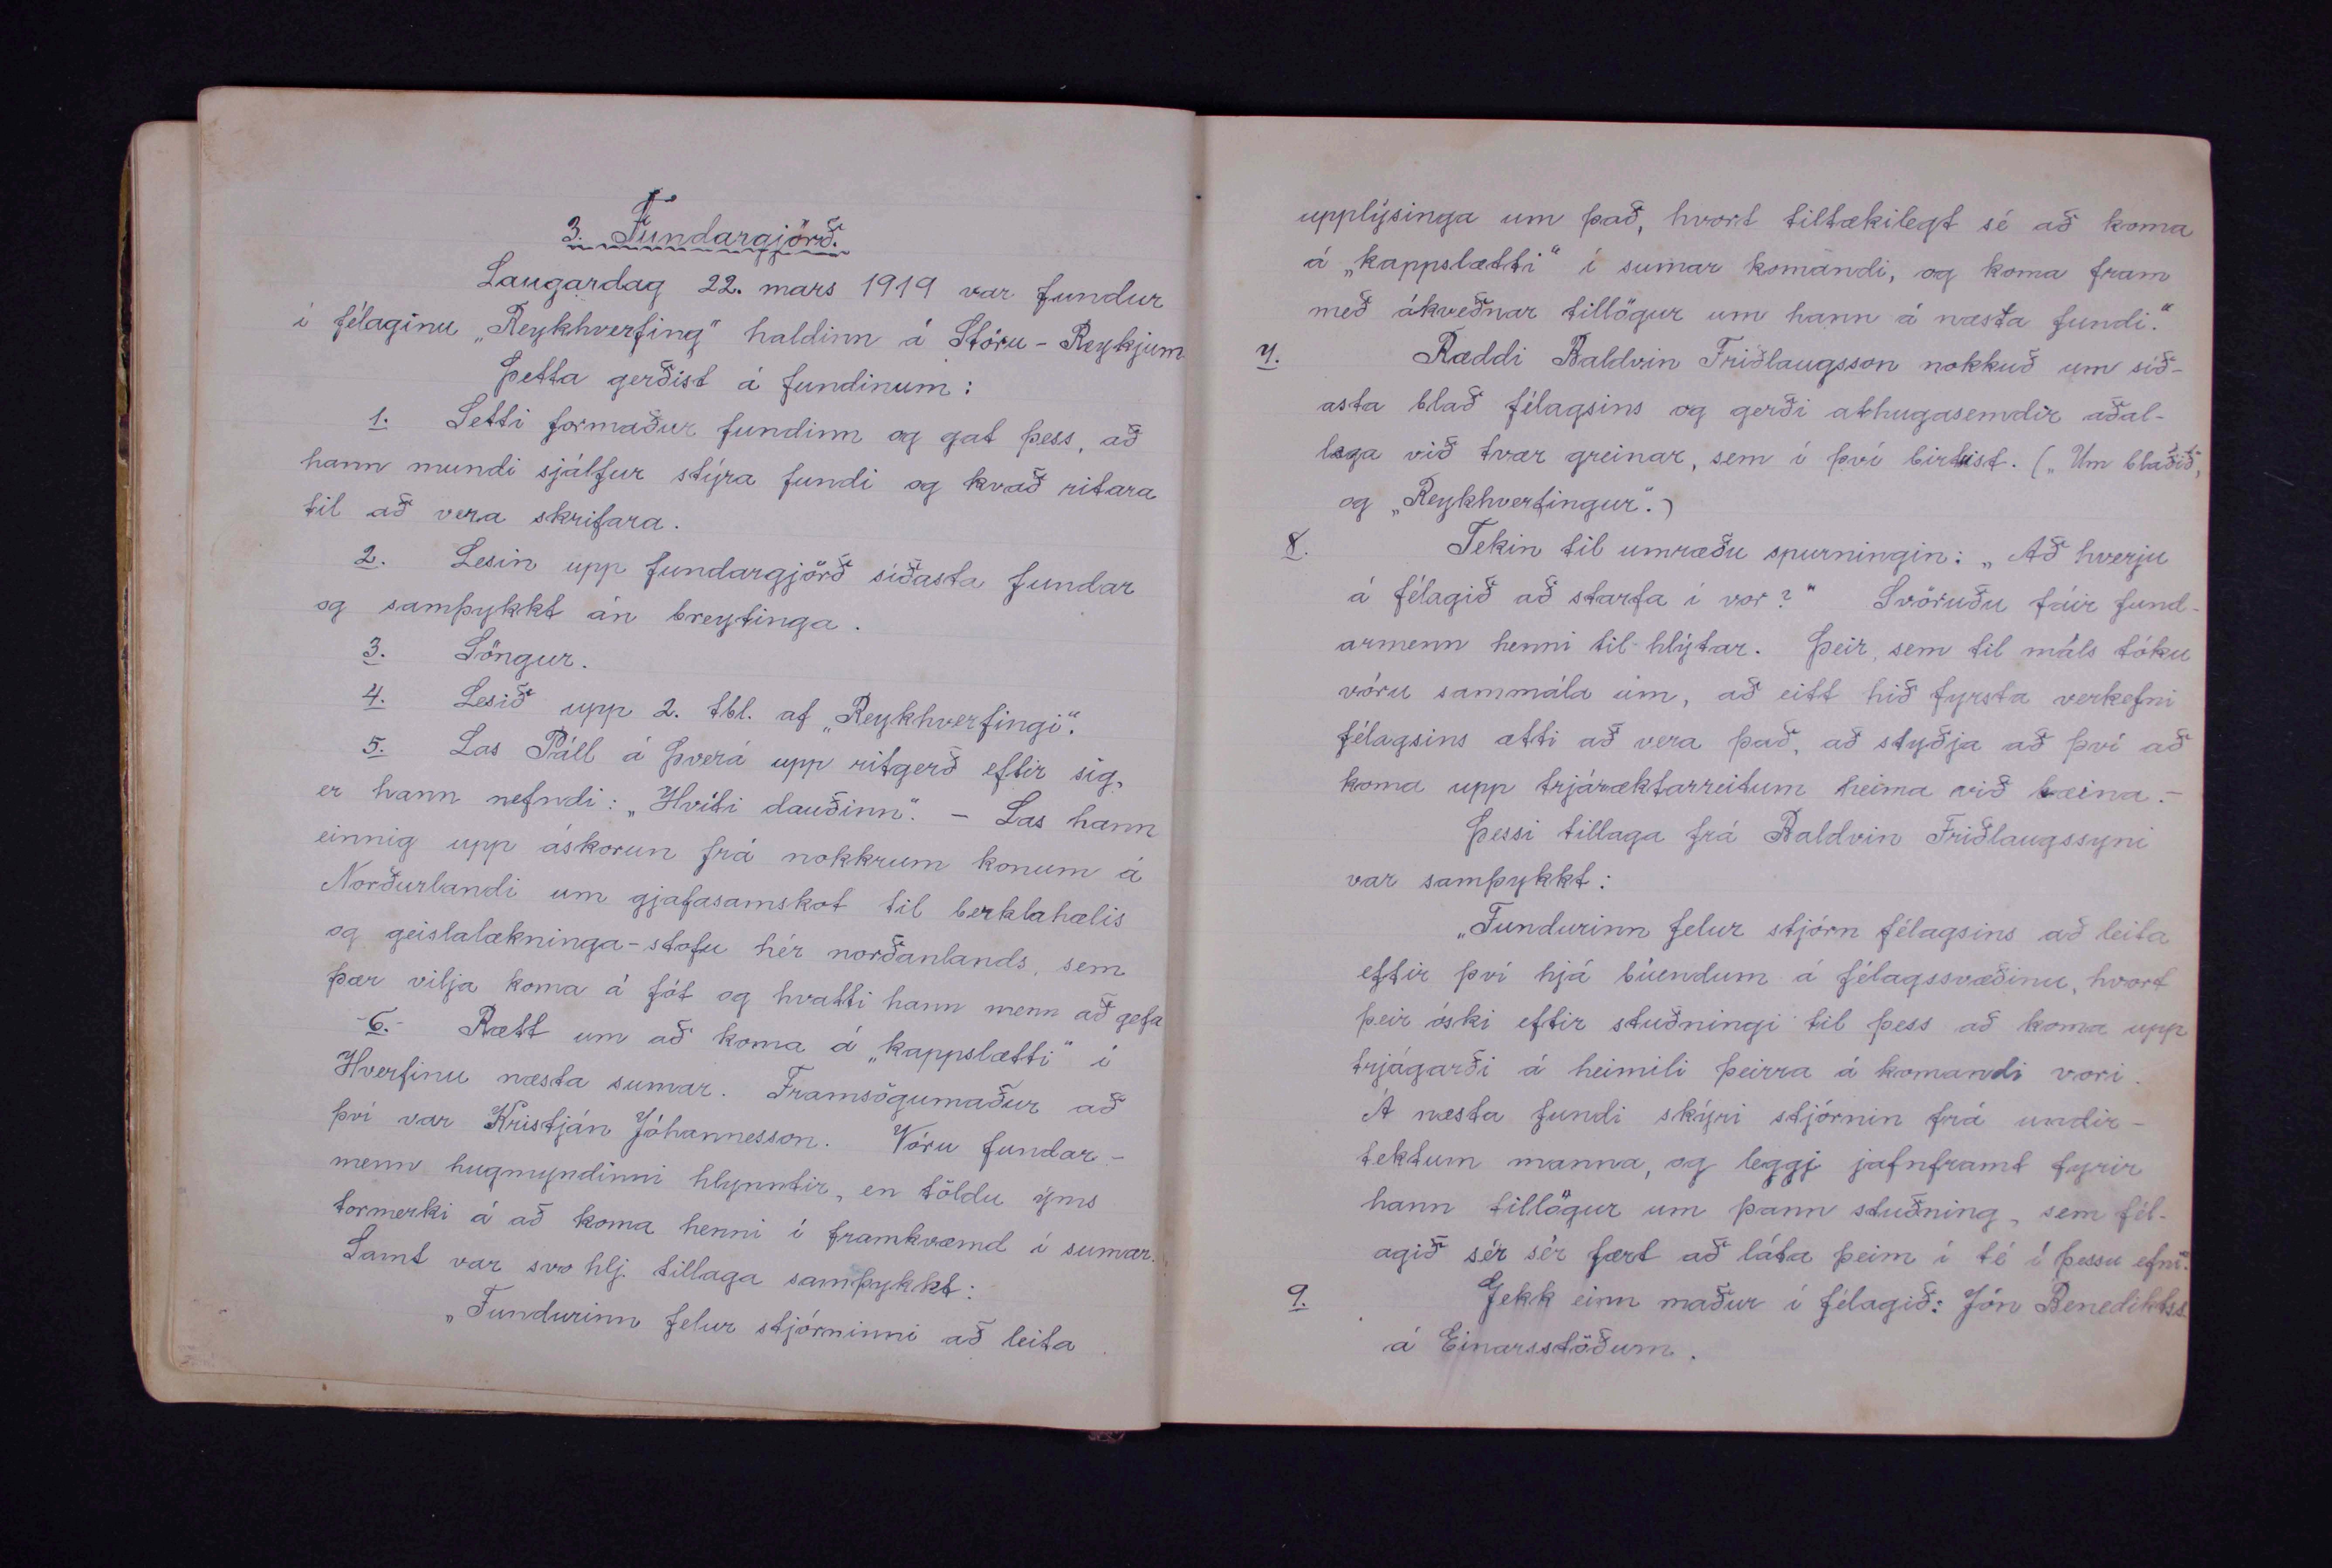 3. Fundargjörð.
Laugardag 22. mars 1919 var fundur
í félaginu „Reykhverfing" haldinn á Stóru-Reykjum
Þetta gerðist á fundinum:
1. Setti formaður fundinn og gat þess, að
hann mundi sjálfur stýra fundi og kvað ritara
til að vera skrifara.
2. Lesin upp fundargjörð síðasta fundar
og samþykkt án breytinga.
3. Söngur.
4. Lesið upp 2. tbl. af „Reykhverfingi".
5. Las Páll á Þverá upp ritgerð eftir sig,
er hann nefndi: „Hvíti dauðinn". - Las hann
einnig upp áskorun frá nokkrum konum á
Norðurlandi um gjafasamskot til berklahælis
og geislalækninga-stofu hér norðanlands, sem
þær vilja koma á fót og hvatti hann menn að gefa
-6.- Rætt um að koma á „kappslætti" í
Hverfinu næsta sumar. Framsögumaður að
því var Kristján Jóhannesson. Vóru fundar-
menn hugmyndinni hlynntir, en töldu ýms
tormerki á að koma henni í framkvæmd í sumar.
Samt var svo hlj. tillaga samþykkt:
„Fundurinn felur stjórninni að leita
upplýsinga um það, hvort tiltækilegt sé að koma
á „kappslætti" í sumar komandi, og koma fram
með ákveðnar tillögur um hann á næsta fundi."
7. Ræddi Baldvin Friðlaugsson nokkuð um síð-
asta blað félagsins og gerði athugasemdir aðal-
lega við tvær greinar, sem í því birtust. („Um blaðið",
og „Reykhverfingur".)
8. Tekin til umræðu spurningin: „Að hverju
á félagið að starfa í vor?" Svöruðu fáir fund-
armenn henni til hlýtar. Þeir, sem til máls tóku
vóru sammála um, að eitt hið fyrsta verkefni
félagsins ætti að vera það, að styðja að því að
koma upp trjáræktarreitum heima við bæina.-
Þessi tillaga frá Baldvin Friðlaugssyni
var samþykkt:
„Fundurinn felur stjórn félagsins að leita
eftir því hjá búendum á félagssvæðinu, hvort
þeir óski eftir stuðningi til þess að koma upp
trjágarði á heimili þeirra á komandi vori.
Á næsta fundi skýri stjórnin frá undir-
tektum manna, og leggi jafnframt fyrir
hann tillögur um þann stuðning, sem fél-
agið sér sér fært að láta þeim í té í þessu efni."
9. Gekk einn maður í félagið: Jón Benediktss.
á Einarsstöðum.